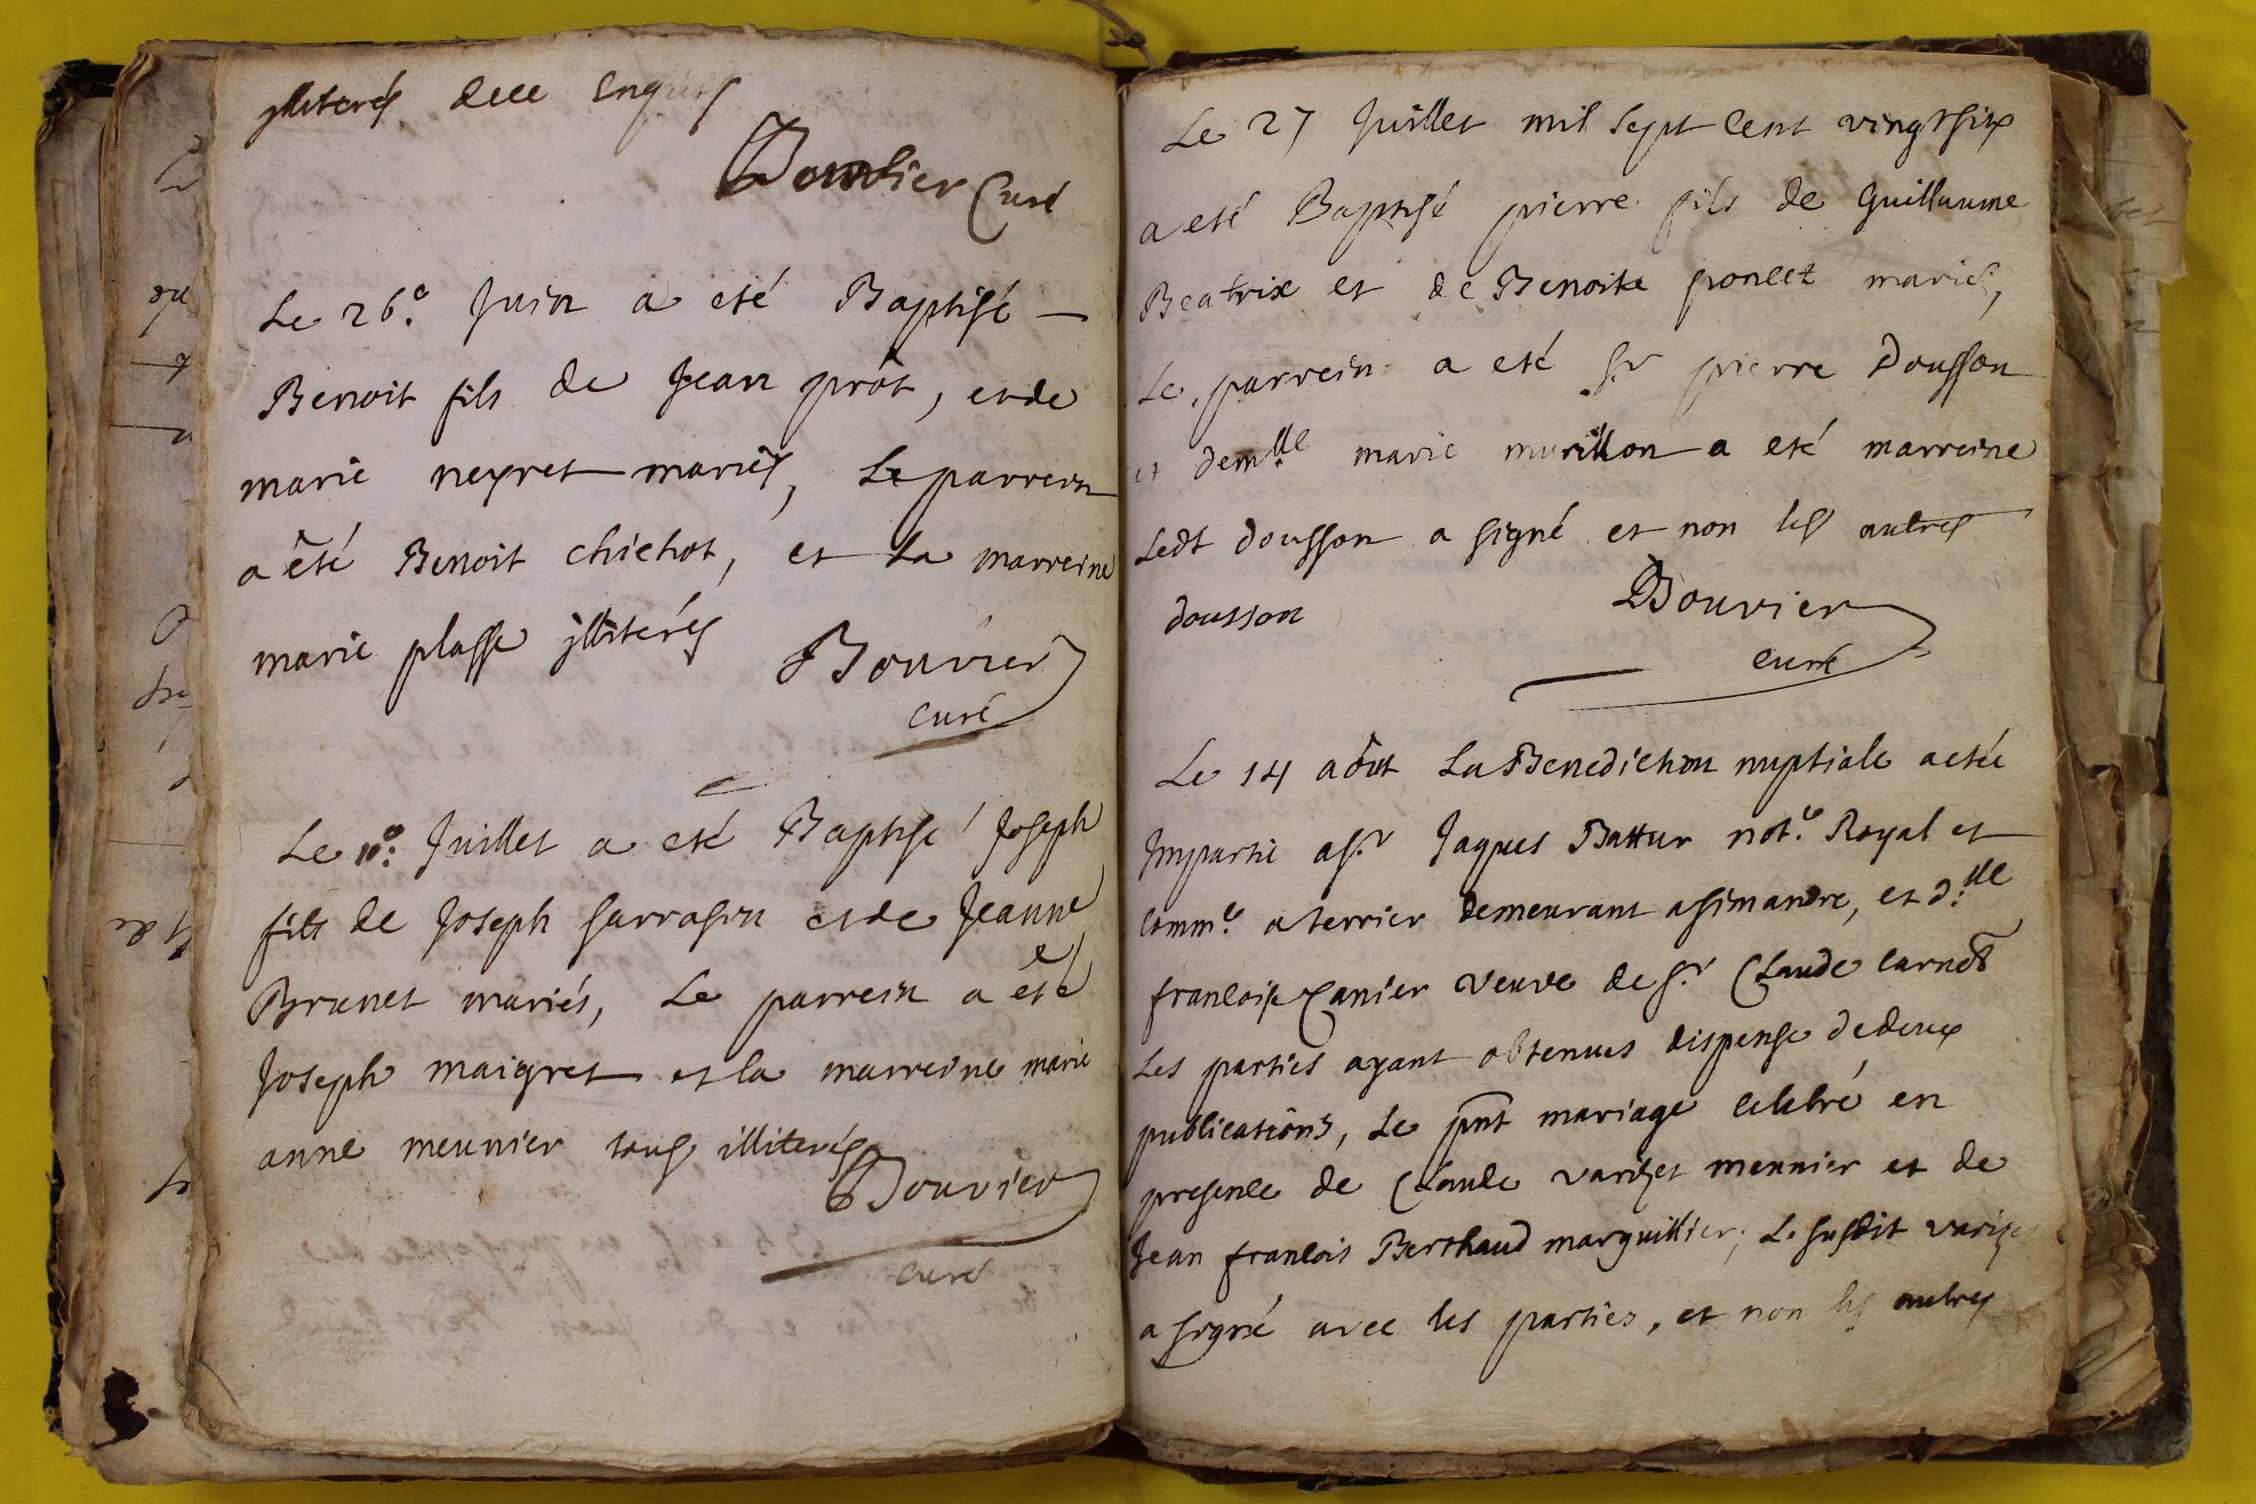 jlliterés dece enquis
Bouvier Curé
Le 26.e Juin a eté Baptisé –
Benoit fils de Jean prôt, et de
marie neyret mariés, Le parrein
a êté Benoit chichot, et La marreine
marie plasse jlliterés
Bouvier
curé
Le 10.e Juillet a eté Baptisé Joseph
fils de Joseph sarrasin et de Jeanne
Brunet mariés, Le parrein a êté
Joseph maigret et la marreine marie
anne meunier tous illiterés
Bouvier
curé
Le 27 Juillet mil sept cent vingt six
a eté Baptisé pierre fils de Guillaume
Beatrix et de Benoite poncet mariés,
Le parrein a eté sr pierre Dousson
et demlle marie murillon a eté marreine
Ledt dousson a signé et non les autres
dousson
Bouvier
curé
Le 14 aôut La Benediction nuptiale a eté
Jmpartie a sr Jaques Battur not.e Royal et
Comm.e a terrier demeurant a simandre, et d.lle
francoise Canier veuve de sr Claude carnot
Les parties ayant obtenues dispense de deux
publicatiôns, Le pnt mariage celebré en
presence de Claude varizet meunier et de
Jean francois Berthaud marguillier; Le susdit
a signé avec les parties, et non les autres